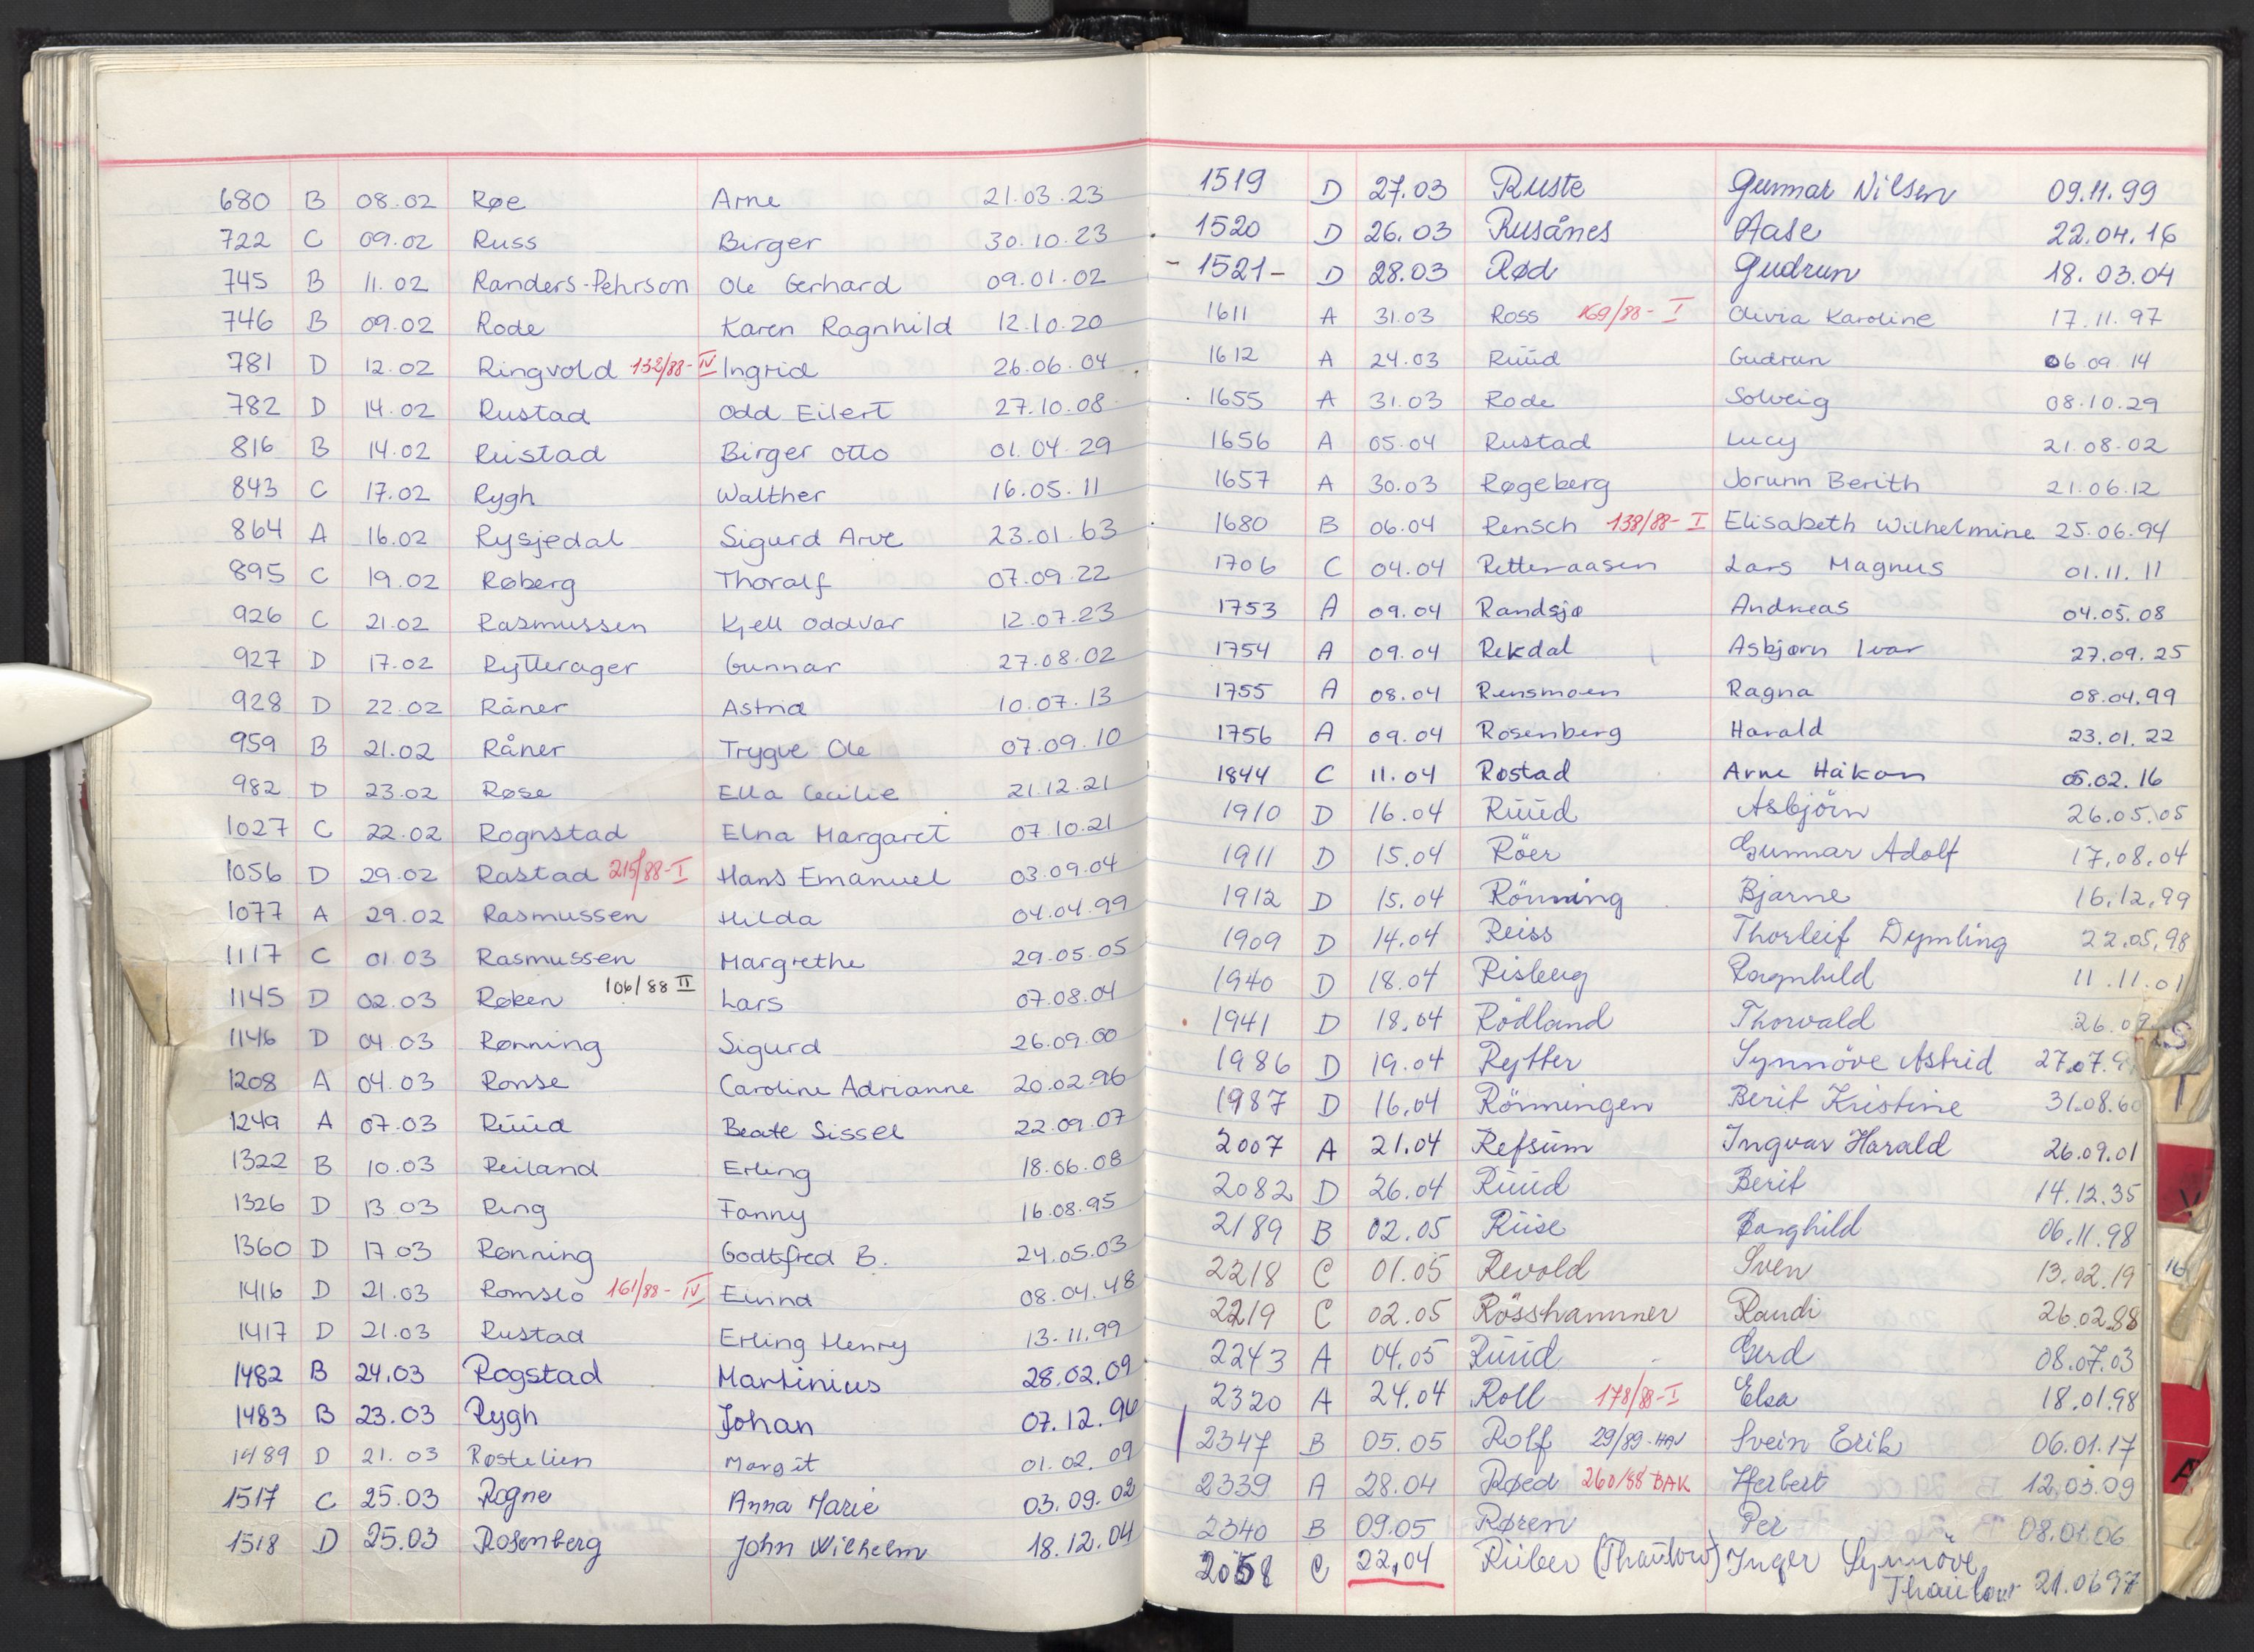 680 B 08.02 Røe Arne 21.03.23
722 C 09.02 Russ Birger 30.10.23
745 B 11.02 Randers-Pehrson Ole Gerhard 09.01.02
746 B 09.02 Rode Karen Ragnhild 12.10.20
781 D 12.02 Ringvold 132/88-IV Ingrid 26.06.04
782 D 14.02 Rustad Odd Eilert 27.10.08
816 B 14.02 Rustad Birger Otto 01.04.29
843 C 17.02 Rygh Walther 16.05.11
864 A 16.02 Rysjedal Sigurd Arve 23.01.63
895 C 19.02 Røberg Thoralf 07.09.22
926 C 21.02 Rasmussen Kjell Oddvar 12.07.23
927 D 17.02 Rytterager Gunnar 27.08.02
928 D 22.02 Råner Astrid 10.07.13
959 B 21.02 Råner Trygve Ole 07.09.10
982 D 23.02 Røse Ella Cecilie 21.12.21
1027 C 22.02 Rognstad Elna Margaret 07.10.21
1056 D 29.02 Rastad 215/88-I Hans Emanuel 03.09.04
1077 A 29.02 Rasmussen Hilda 04.04.99
1117 C 01.03 Rasmussen Margrethe 29.05.05
1145 D 02.03 Røken 106/88 II Lars 07.08.04
1146 D 04.03 Rønning Sigurd 26.09.00
1208 A 04.03 Ronse Caroline Adrianne 20.02.96
1249 A 07.03 Rüüd Beate Sissel 22.09.07
1322 B 10.03 Reiland Erling 18.06.08
1326 D 13.03 Ring Fanny 16.08.95
1360 D 17.03 Rønning Godtfred B. 24.05.03
1416 D 21.03 Romslo 161/88-IV Eivind 08.04.48
1417 D 21.03 Rustad Erling Henry 13.11.99
1482 B 24.03 Rogstad Martinius 28.02.09
1483 B 23.03 Rygh Johan 07.12.96
1489 D 21.03 Røstelien Margit 01.02.09
1517 C 25.03 Rogne Anna Marie 03.09.02
1518 D 25.03 Rosenberg John Wilhelm 18.12.04
1519 D 27.03 Ruste Gunnar Nilsen 09.11.99
1520 D 26.03 Rusånes Aase 22.04.16
- 1521 - D 28.03 Rød Gudrun 18.03.04
1611 A 31.03 Ross 169/88-I Olivia Karoline 17.11.97
1612 A 24.03 Rüüd Gudrun 06.09.14
1655 A 31.03 Rode Solveig 08.10.29
1656 A 05.04 Rustad Lucy 21.08.02
1657 A 30.03 Røgeberg Jorunn Berith 21.06.12
1680 B 06.04 Rensch 138/88-I Elisabeth Wilhelmine 25.06.94
1706 C 04.04 Retteraasen Lars Magnus 01.11.11
1753 A 09.04 Randsjø Andreas 04.05.08
1754 A 09.04 Rekdal Asbjørn Ivar 27.09.25
1755 A 08.04 Rensmoen Ragna 08.04.99
1756 A 09.04 Rosenberg Harald 23.01.22
1844 C 11.04 Røstad Arne Håkon 05.02.16
1910 D 16.04 Rüüd Asbjörn 26.05.05
1911 D 15.04 Röer Gunnar Adolf 17.08.04
1912 D 15.04 Rönning Bjarne 16.12.99
1909 D 14.04 Reiss Thorleif Dymling 22.05.98
1940 D 18.04 Risberg Ragnhild 11.11.01
1941 D 18.04 Rödland Thorvald 26.09
1986 D 19.04 Rytter Synnöve Astrid 27.07.9
1987 D 16.04 Rönningen Berit Kristine 31.08.60
2007 A 21.04 Refsüm Ingvar Harald 26.09.01
2082 D 26.04 Rüüd Berit 14.12.35
2189 B 02.05 Riise Borghild 06.11.98
2218 C 01.05 Revold Sven 13.02.19
2219 C 02.05 Rösshammer Randi 26.02.88
2243 A 04.05 Rüüd Gerd 08.07.03
2320 A 24.04 Roll 178/88-I Elsa 18.01.98
2347 B 05.05 Rolf 29/89-HAV Svein Erik 06.01.17
2339 A 28.04 Røed 260/88 BAK Herbert 12.03.09
2340 B 09.05 Røren Per 08.01.06
2058 C 22.04 Rüber (Thaülow) Inger Synnöve
Thaülow 21.0697